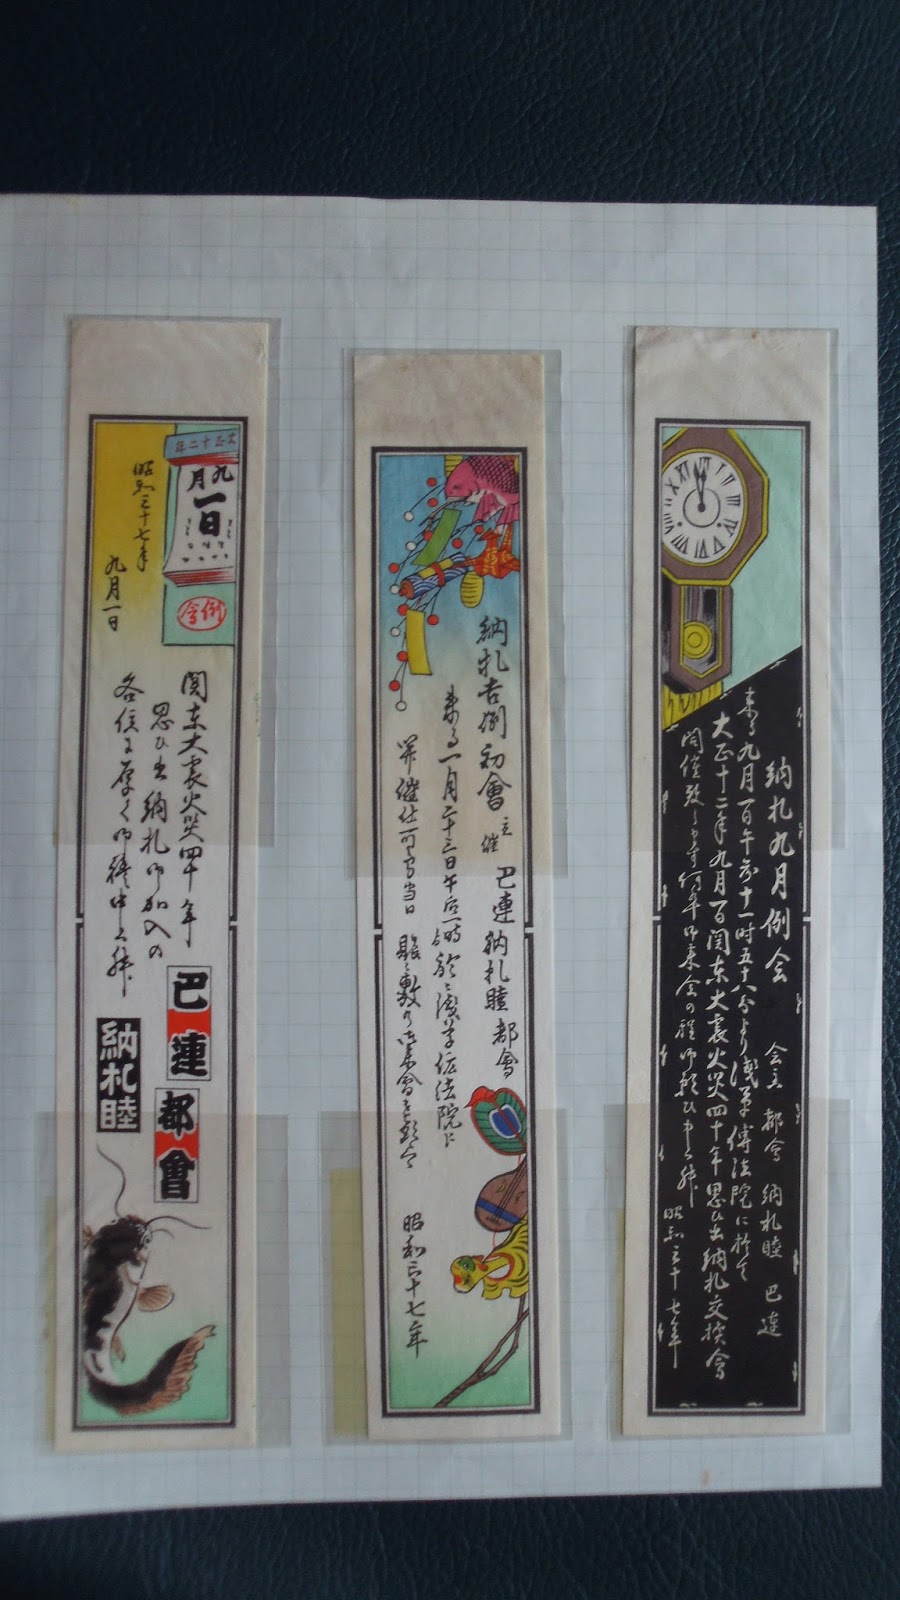 納札九月例会 会主 都會 納札睦 巴連
来る九月一日午前十一時五十八分より浅草傳法院に於て
大正十二年九月一日関東大震火災四十年思ひ出納札交換會
開催致します何卒御来会の程御願ひ申上升
昭和三十七年
納札吉例初會 主催 巴連納札睦都會
来る一月二十三日午后一時於浅草伝法院に
開催仕可く当日 賑々敷御来會を
昭和三十七年
大正十二年
九月
一日
例会
昭和三十七年
九月一日
関東大震火災四十年
思ひ出納札御加入の
各位に厚く御禮申上升
巴連都會
納札睦